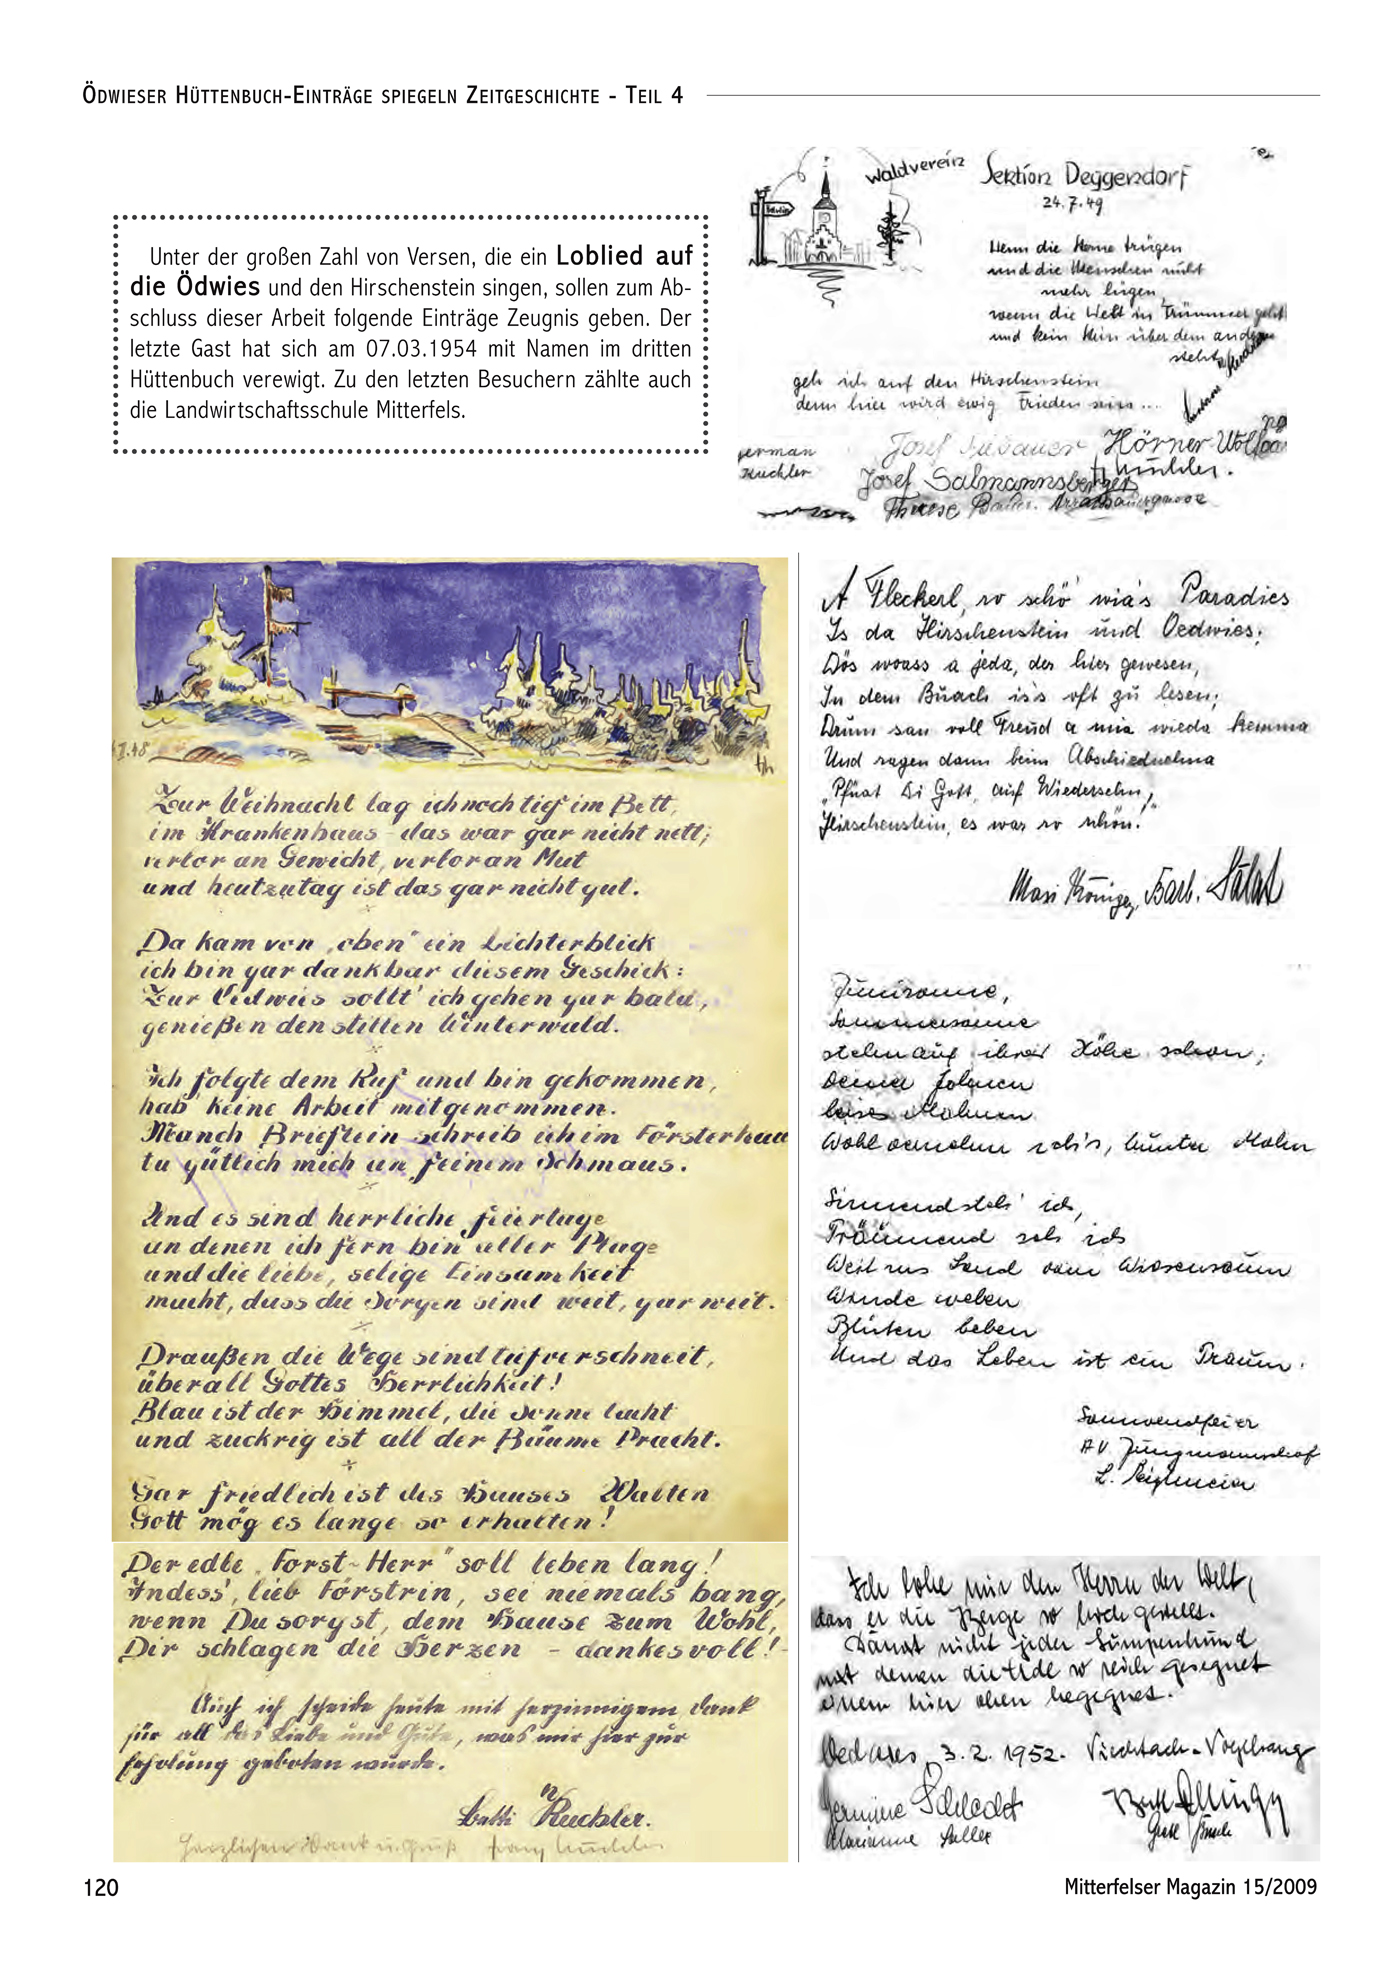 ÖDWIESER HÜTTENBUCH-EINTRÄGE SPIEGELN ZEITGESCHICHTE - TEIL 4
Waldverein
Sektion Deggendorf
24.7.49
Wenn die Sterne trügen
und die Menschen nicht
mehr lügen,
wenn die Welt in Trümmer geht
und kein Stein über dem andern
steht
geh ich auf den Hirschenstein
denn hier wird ewig Frieden sein...
Josef Hörner Wolfgang
German
Kuchler
Josef Salmannsberger
Therese Bauer
Unter der großen Zahl von Versen, die ein Loblied auf
die Ödwies und den Hirschenstein singen, sollen zum Ab-
schluss dieser Arbeit folgende Einträge Zeugnis geben. Der
letzte Gast hat sich am 07.03.1954 mit Namen im dritten
Hüttenbuch verewigt. Zu den letzten Besuchern zählte auch
die Landwirtschaftsschule Mitterfels.
II.48
Zur Weihnacht lag ich noch tief im Bett,
im Krankenhaus - das war gar nicht nett;
verlor an Gewicht, verlor an Mut
und heutzutag ist das gar nicht gut.
Da kam von „oben" ein Lichterblick
ich bin gar dankbar diesem Geschick:
Zur Oedwies sollt' ich gehen gar bald,
genießen den stillen Winterwald.
Ich folgte dem Ruf und bin gekommen,
hab' keine Arbeit mitgenommen.
Manch Brieflein schreib ich im Försterhau
tu gütlich mich an feinem Schmaus.
Und es sind herrliche Feiertage
an denen ich fern bin aller Plage
und die liebe, selige Einsamkeit
macht, dass die Sorgen sind weit, gar weit.
Draußen die Wege sind tief verschneit,
überall Gottes Herrlichkeit!
Blau ist der Himmel, die Sonne lacht
und zuckrig ist all der Bäume Pracht.
Gar friedlich ist des Hauses Walten
Gott mög es lange so erhalten!
Der edle „Forst-Herr" soll leben lang!
Indess', lieb Förstrin, sei niemals bang,
wenn Du sorgst, dem Hause zum Wohl,
Dir schlagen die Herzen - dankesvoll!
Auch ich scheide heute mit herzinnigem Dank
für all das Liebe und Gute, was mir hier zur
Erholung geboten wurde.
Betti Kuchler.
Herzlichen Dank u. Gruß
A Fleckerl, so schö' wia's Paradies
Is da Hirschenstein und Oedwies;
Dös woass a jeda, der hier gewesen,
In dem Buach is's oft zu lesen;
Drum san voll Freud a mia wieda kemma
Und sagen dann beim Abschiednehma
„Pfüat Di Gott, auf Wiedersehn,
Hirschenstein, es war so schön!"
Maxi Königer, Barb.
Junisonne,
Sommersonne
stehn auf ihrer Höhe schon;
Deine
leises Mahnen
Wohl vernehm ich's, bunter Mohn
Sinnend steh' ich,
Träumend seh ich
Weit ins Land vom Wiesensaum
Winde weben
Blüten beben
Und das Leben ist ein Traum.
Sonnwendfeier
AV Jungmannschaft
Ich lobe mir den Herrn der Welt,
dass er die Berge so hoch gestellt.
Damit nicht jeder Lumpenhund
mit denen die Erde so reich gesegnet
einem hier oben begegnet.
Oedwies, 3.2.1952. Viechtach-Vogelsang
Hermine Schlecht
Marianne
120
Mitterfelser Magazin 15/2009